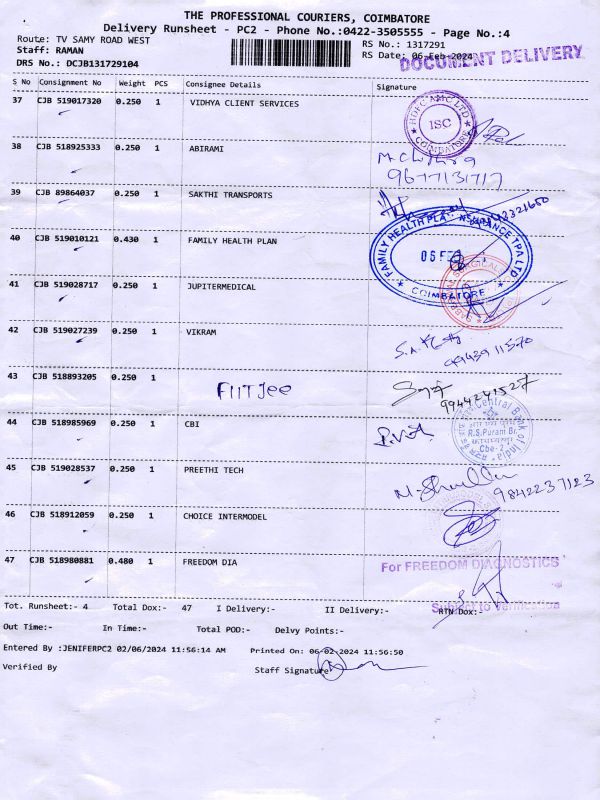 THE PROFESSIONAL COURIERS, COIMBATORE
Delivery Runsheet - PC2 - Phone No.:0422-3505555 - Page No.:4
Route: TV SAMY ROAD WEST
RS No.: 1317291
Staff: RAMAN
RS Date: 06-Feb-2024
DOCUMENT DELIVERY
DRS No.: DCJB131729104
S No Consignment No Weight PCS Consignee Details Signature
37 CJB 519017320 0.250 1 VIDHYA CLIENT SERVICES
HDFC AMC LTD
ISC
COIMBATORE
38 CJB 518925333 0.250 1 ABIRAMI
9677131717
39 CJB 89864037 0.250 1 SAKTHI TRANSPORTS
40 CJB 519010121 0.430 1 FAMILY HEALTH PLAN
FAMILY HEALTH PLAN INSURANCE TPA LTD
COIMBATORE
41 CJB 519028717 0.250 1 JUPITERMEDICAL
42 CJB 519027239 0.250 1 VIKRAM
43 CJB 518893205 0.250 1 FIITJee
9944241527
44 CJB 518985969 0.250 1 CBI
Central Bank of India
R.S.Puram Br.
Cbe-2
45 CJB 519028537 0.250 1 PREETHI TECH
9842237123
46 CJB 518912059 0.250 1 CHOICE INTERMODEL
47 CJB 518980881 0.480 1 FREEDOM DIA
For FREEDOM DIAGNOSTICS
Subject to Verification
Tot. Runsheet:- 4 Total Dox:- 47 I Delivery:- II Delivery:- RTN Dox:-
Out Time:- In Time:- Total POD:- Delvy Points:-
Entered By :JENIFERPC2 02/06/2024 11:56:14 AM Printed On: 06-02-2024 11:56:50
Verified By Staff Signature